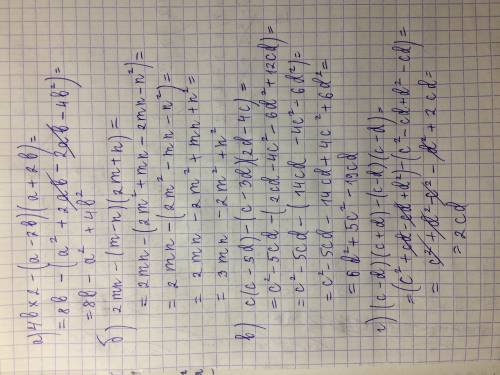 а) 4b x 2 - (a - 2b)(a + 2b) =
= 8b - (a² + 2ab - 2ab - 4b²) =
= 8b - a² + 4b²
б) 2mn - (m - n)(2m + n) =
= 2mn - (2m² + mn - 2mn - n²) =
= 2mn - (2m² - mn - n²) =
= 2mn - 2m² + mn + n² =
= 3mn - 2m² + n²
в) c(c - 5d) - (c - 3d)(2d - 4c) =
= c² - 5cd - (2cd - 4c² - 6d² + 12cd) =
= c² - 5cd - (14cd - 4c² - 6d²) =
= c² - 5cd - 14cd + 4c² + 6d² =
= 6d² + 5c² - 19cd
г) (c - d)(c + d) - (c - d)(c - d) =
= (c² + cd - cd + d²) - (c² - cd + d² - cd) =
= c² + d² - c² - d² + 2cd =
= 2cd